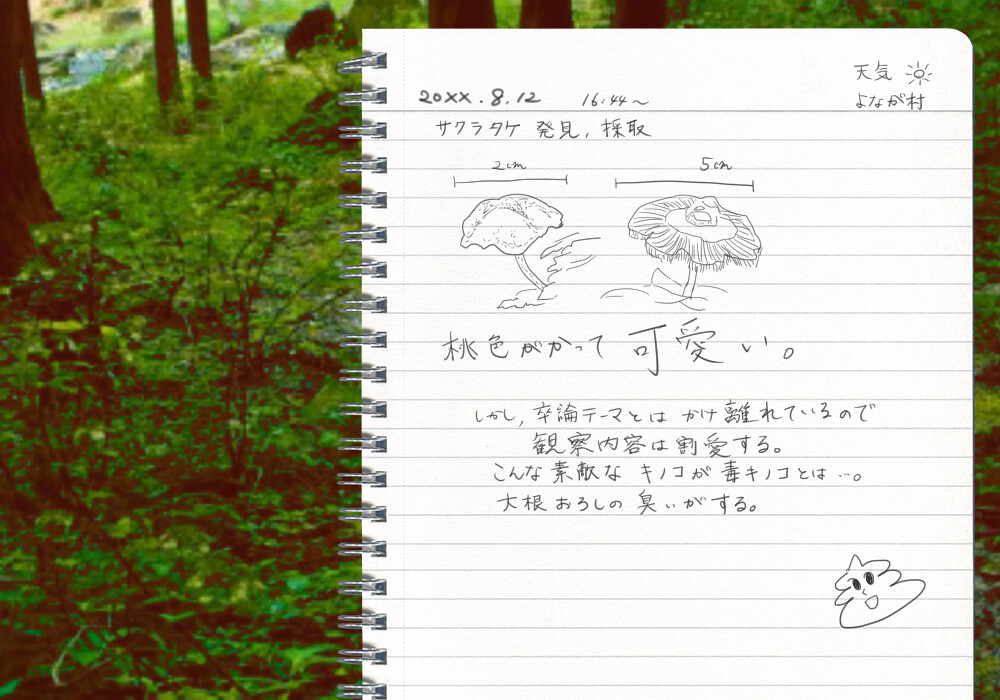 天気
よなが村
20XX.8.12 16:44〜
サクラタケ 発見,採取
2cm 5cm
桃色がかって可愛い。
しかし,卒論テーマとは かけ離れているので
観察内容は割愛する。
こんな素敵な キノコが 毒キノコとは…。
大根おろしの 臭いがする。